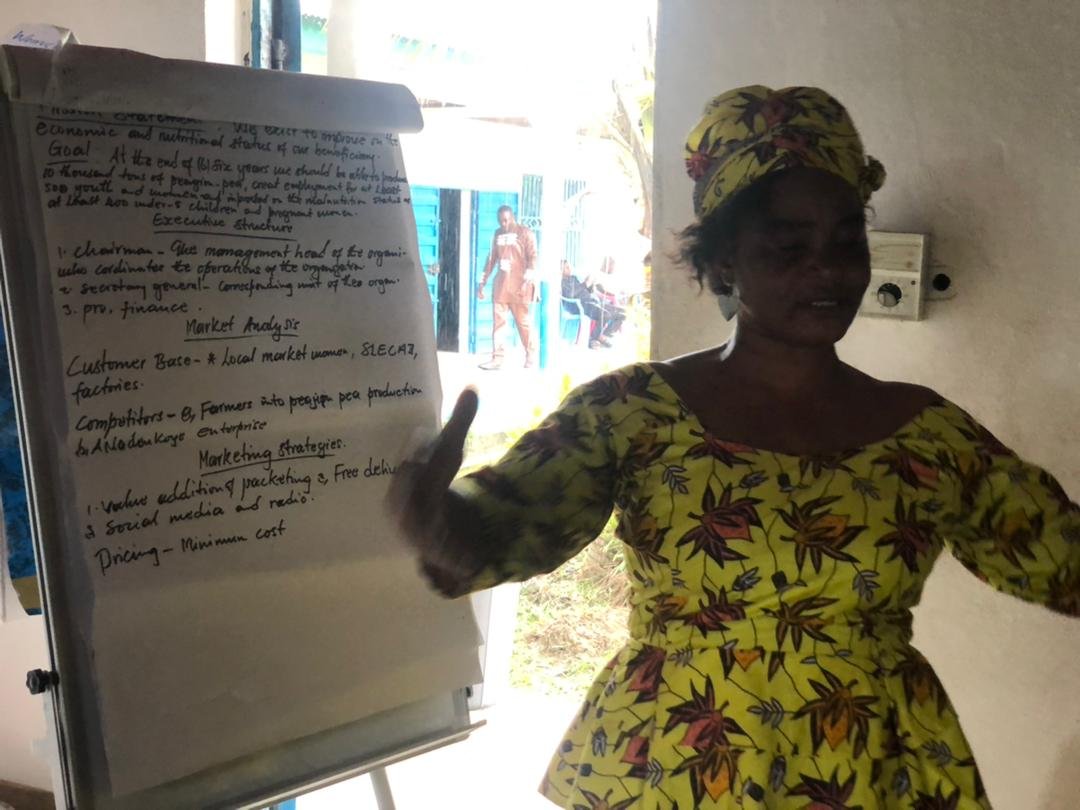 Mission Statement. We exist to improve on the
economic and nutritional status of our beneficiary.
Goal - At the end of (6) six years we should be able to produce
10 thousand tons of peagon-pea, creat employment for at least
500 youth and women and on the malnutrition status
at least 400 under-5 children and pregnant women.
Executive Structure
1. Chairman - The management head of the organi-
who cordinates the operations of the organisation
2 Secretary general - Corresponding unit of the organ.
3. pro, finance.
Market Analysis
Customer Base - * Local market women,
factories.
Competitors - a, Farmers into pea production
b, enterprise
Marketing Strategies.
1. value addition & packeting 2, Free
3 Social media and radio.
Pricing - Minimum cost